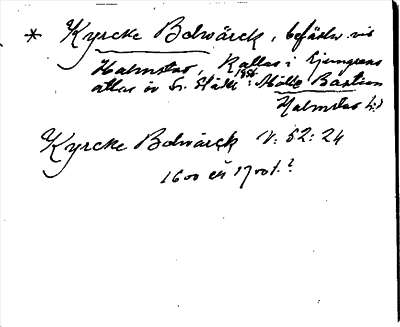 * Kyrcke Bolwärck, befästn. vid
Halmstad, kallas i Ljunggrens
atlas öv. Sv. Städer 1956: Mölle Bastion
Halmstad
Kyrcke Bolwärck V: 52: 24
1600 el 1700 t.?